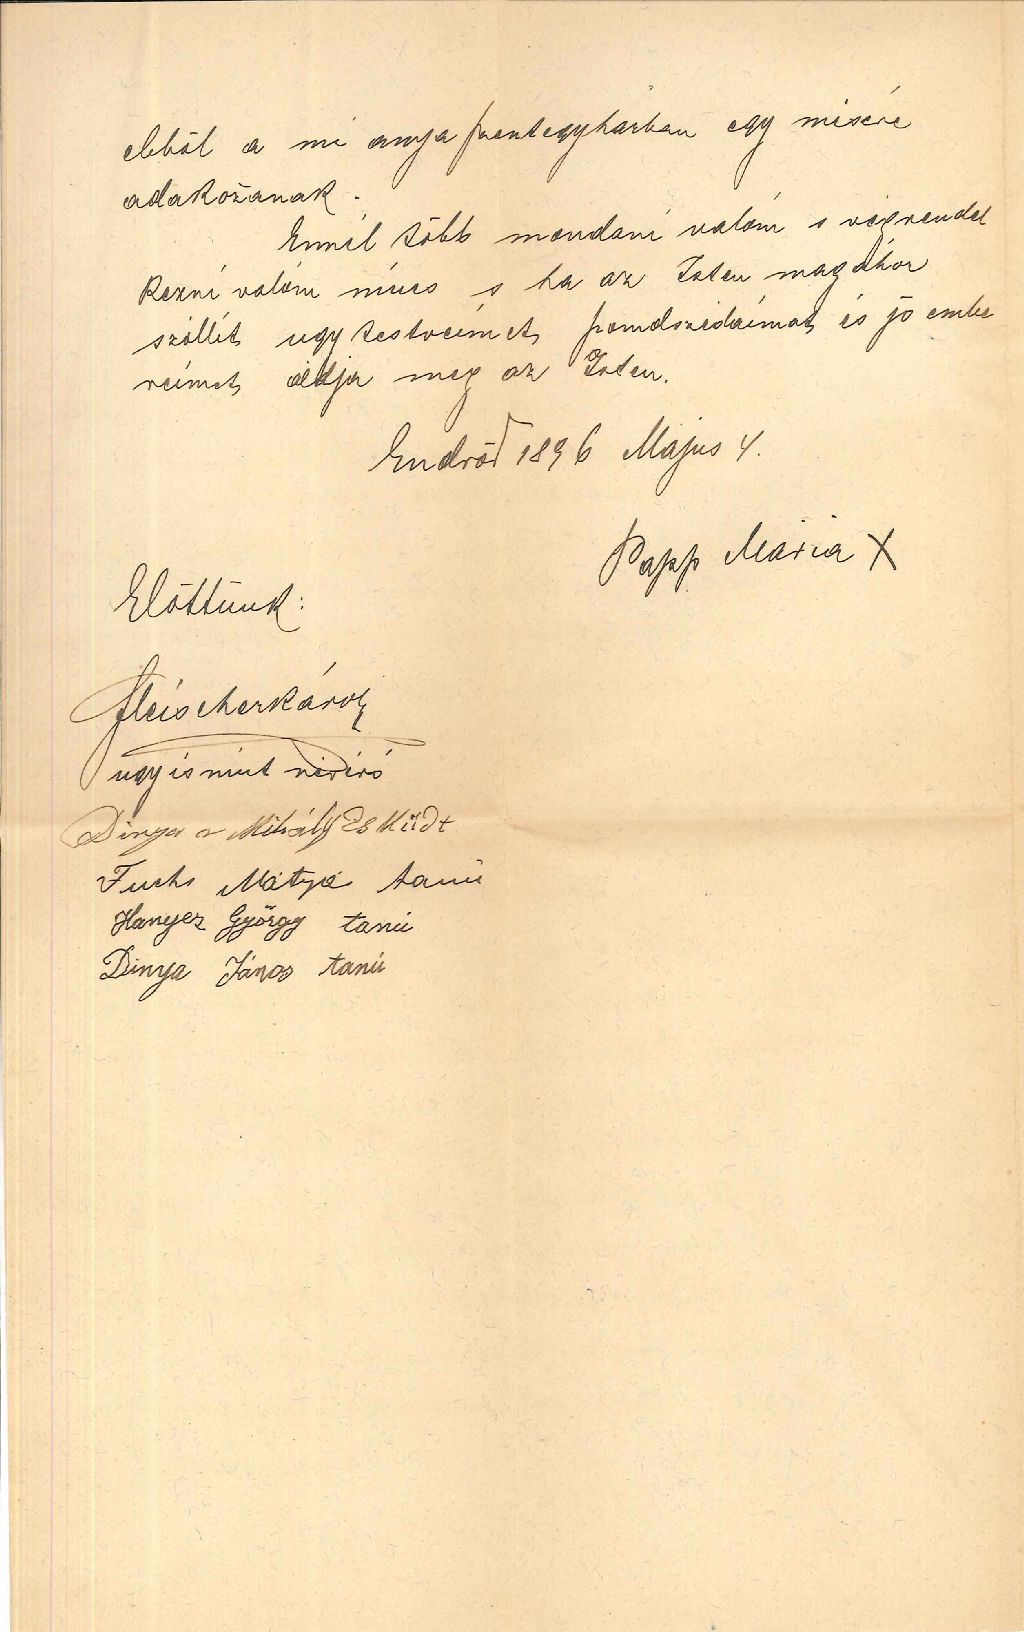 ebből a mi anya szentegyházban egy misére
adakozanak.
Ennél több mondani valóm s végrendel
kezni valóm nincs s ha az Isten magához
szóllít ugy testvéimet, szomdszédaimat, és jó embe
reimet, áldja meg az Isten.
Endrőd 1896 Május 4.
Papp Mária X
Előttünk:
Fleischer Károly
ugyis mint névíró
Dinya Mihály Esküdt
Fuchs Mátyá tanú
Hanyecz György tanú
Dinya János tanú